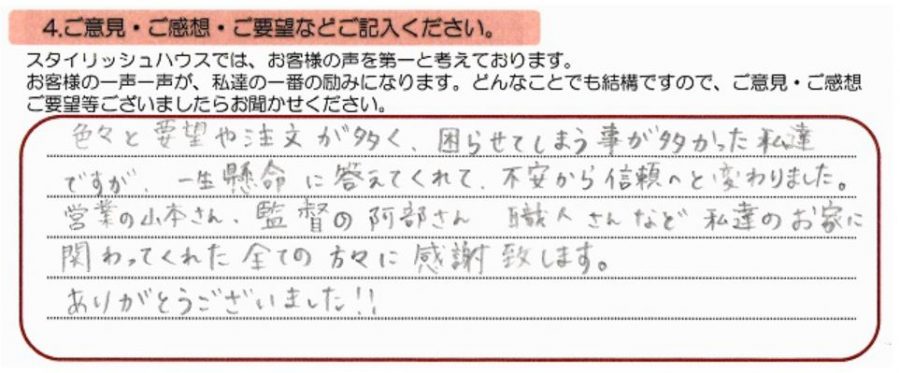 4.ご意見・ご感想・ご要望などご記入ください。
スタイリッシュハウスでは、お客様の声を第一と考えております。
お客様の一声一声が、私達の一番の励みになります。どんなことでも結構ですので、ご意見・ご感想
ご要望等ございましたらお聞かせください。
色々と要望や注文が多く、困らせてしまう事が多かった私達
ですが、一生懸命に答えてくれて、不安から信頼へと変わりました。
営業の山本さん、監督の阿部さん 職人さんなど私達のお家に
関わってくれた全ての方々に感謝致します。
ありがとうございました!!